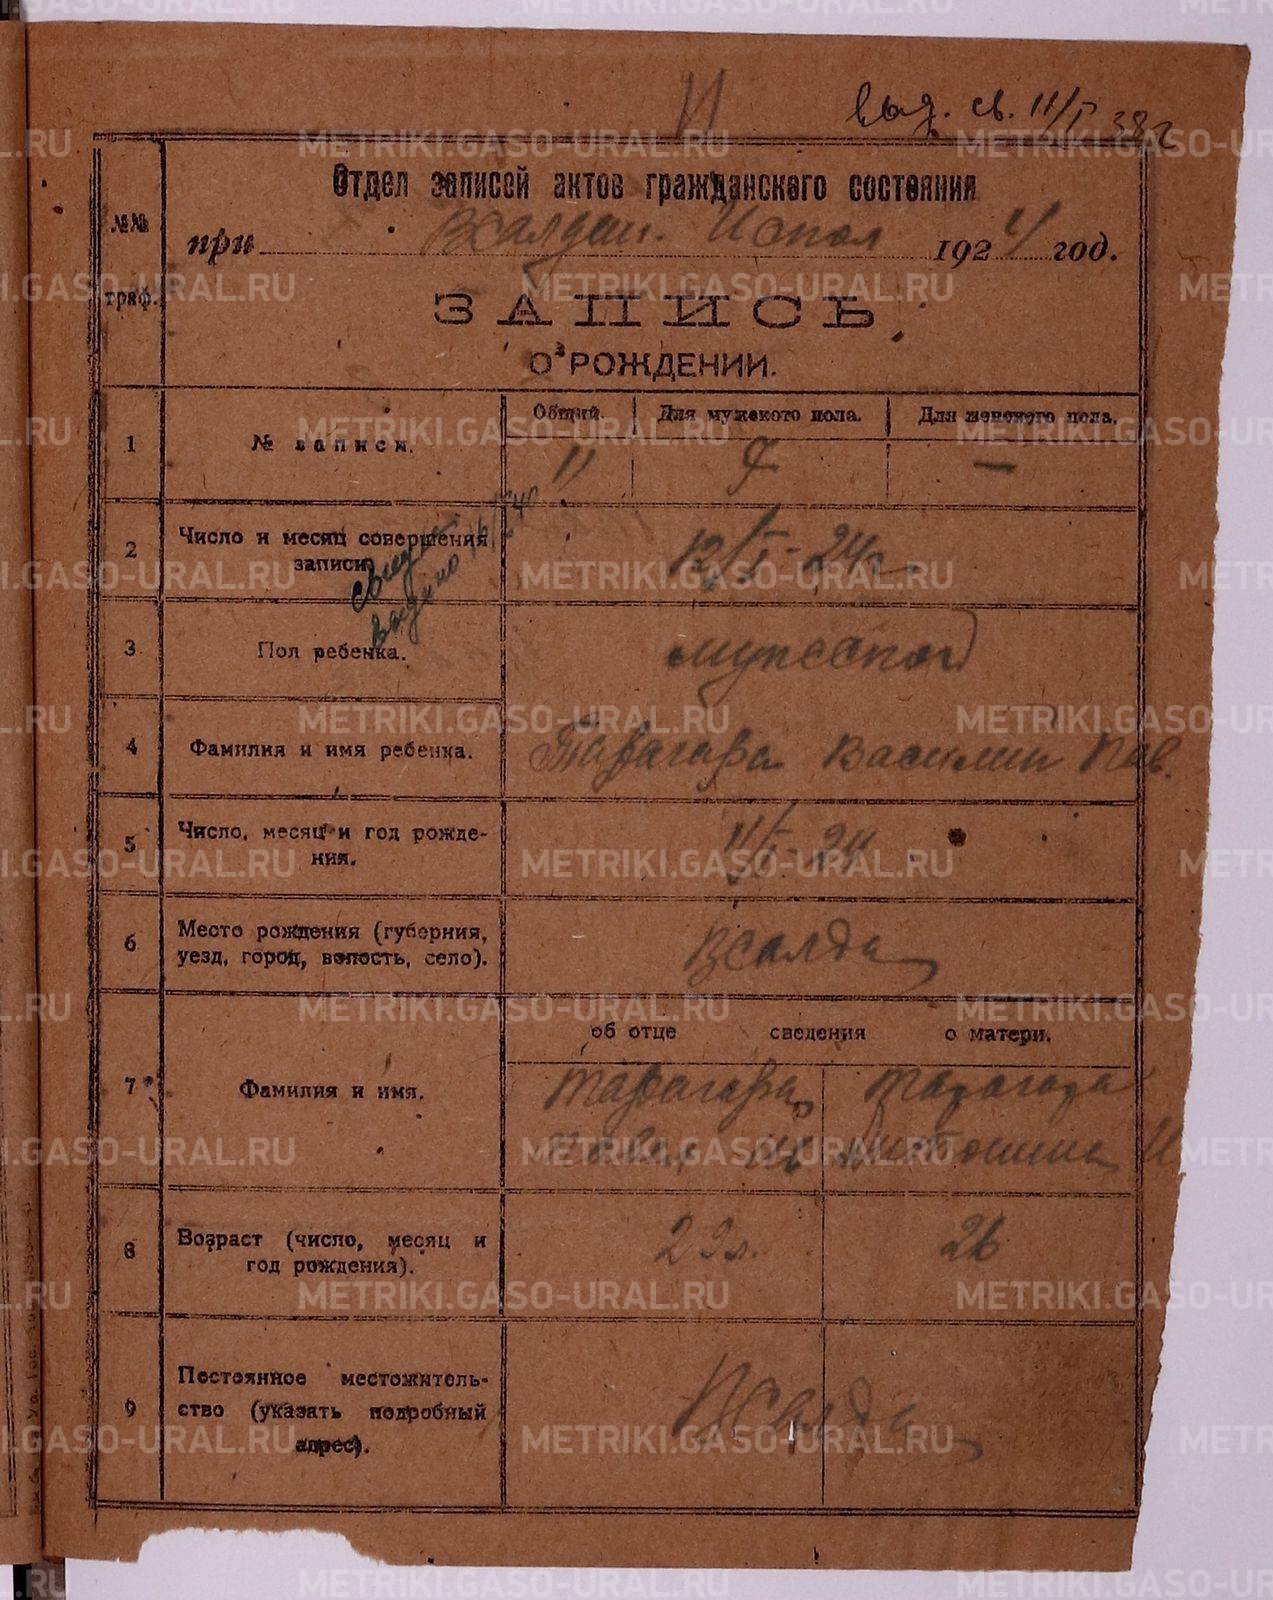 И
выд. св. 11/I 38 г
Отдел записей актов гражданского состояния
№№ граф.
при Всалдин. Испол 1924 год.
ЗАПИСЬ
О РОЖДЕНИИ.
Общий. Для мужского пола. Для женского пола.
1 № записи. 11 7 —
2 Число и месяц совершения записи. 12/I-24 г.
выдано 16/ 40
3 Пол ребенка. мужской
4 Фамилия и имя ребенка. Тарагара Василий Пав.
5 Число, месяц и год рождения. 11/I-24
6 Место рождения (губерния, уезд, город, волость, село). Всалда
об отце сведения о матери.
7 Фамилия и имя. Тарагара Тарагара
Павел Антонина И
8 Возраст (число, месяц и год рождения). 29 л. 26
9 Постоянное местожительство (указать подробный адрес). ВСалда
METRIKI.GASO-URAL.RU